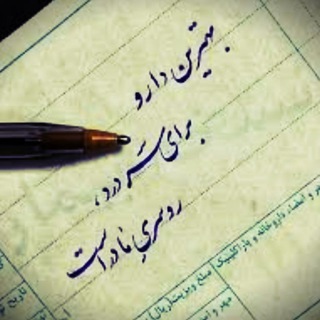 بهترین دارو
برای سَر درد،
روسریِ مادر است
مهر و امضاء داروخانه و پاراکلینیک
مبلغ ویزیت (ریال)
مهر و
تاریخ